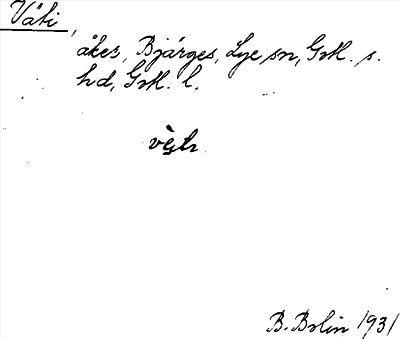 Väti,
åker, Bjärges, Lye sn, Gotl. s.
hd, Gotl. l.
B. Bolin 1931